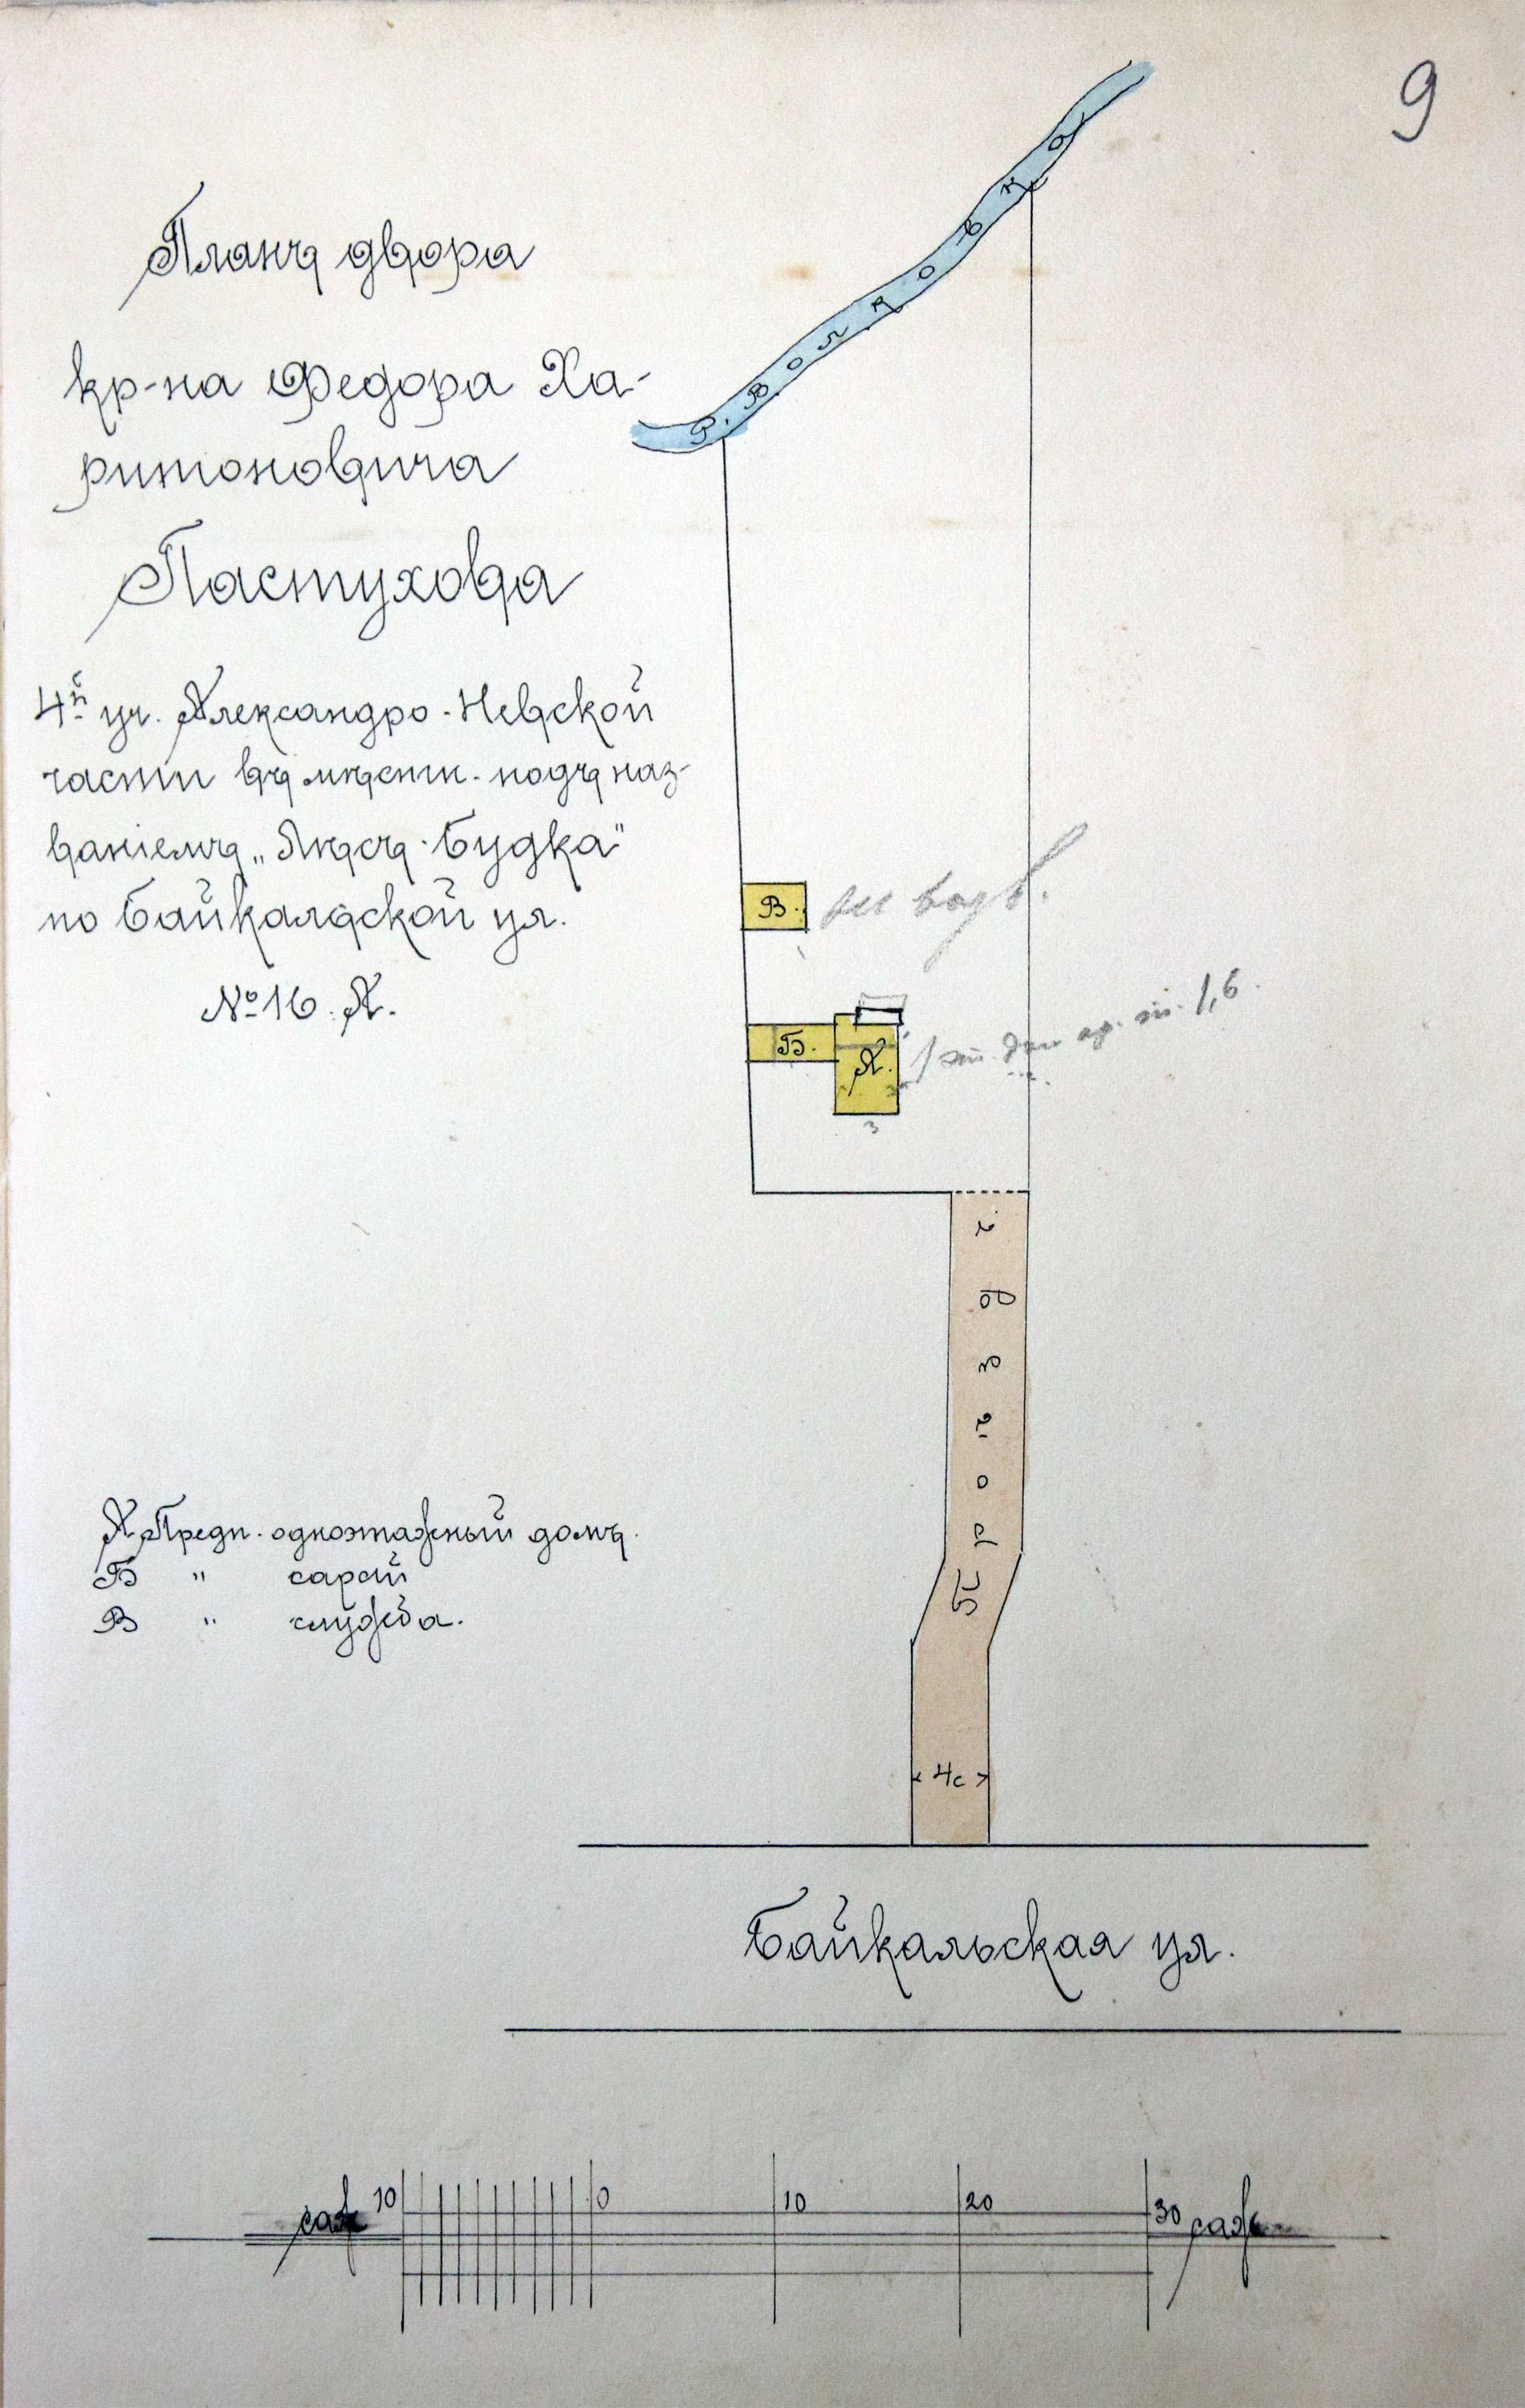 9
Планъ двора
кр-на Федора Ха-
ритоновича
Пастухова
4й уч. Александро-Невской
части въ мѣстн. подъ наз-
ваніемъ „Лѣсъ-Будка"
по Байкальской ул.
№ 16. А.
Р. Волковка
В.
Б.
А.
3
1,6.
Проѣздъ
4с
А Предп. одноэтажный домъ.
Б " сарай
В " служба.
Байкальская ул.
саж 10 0 10 20 30 саж